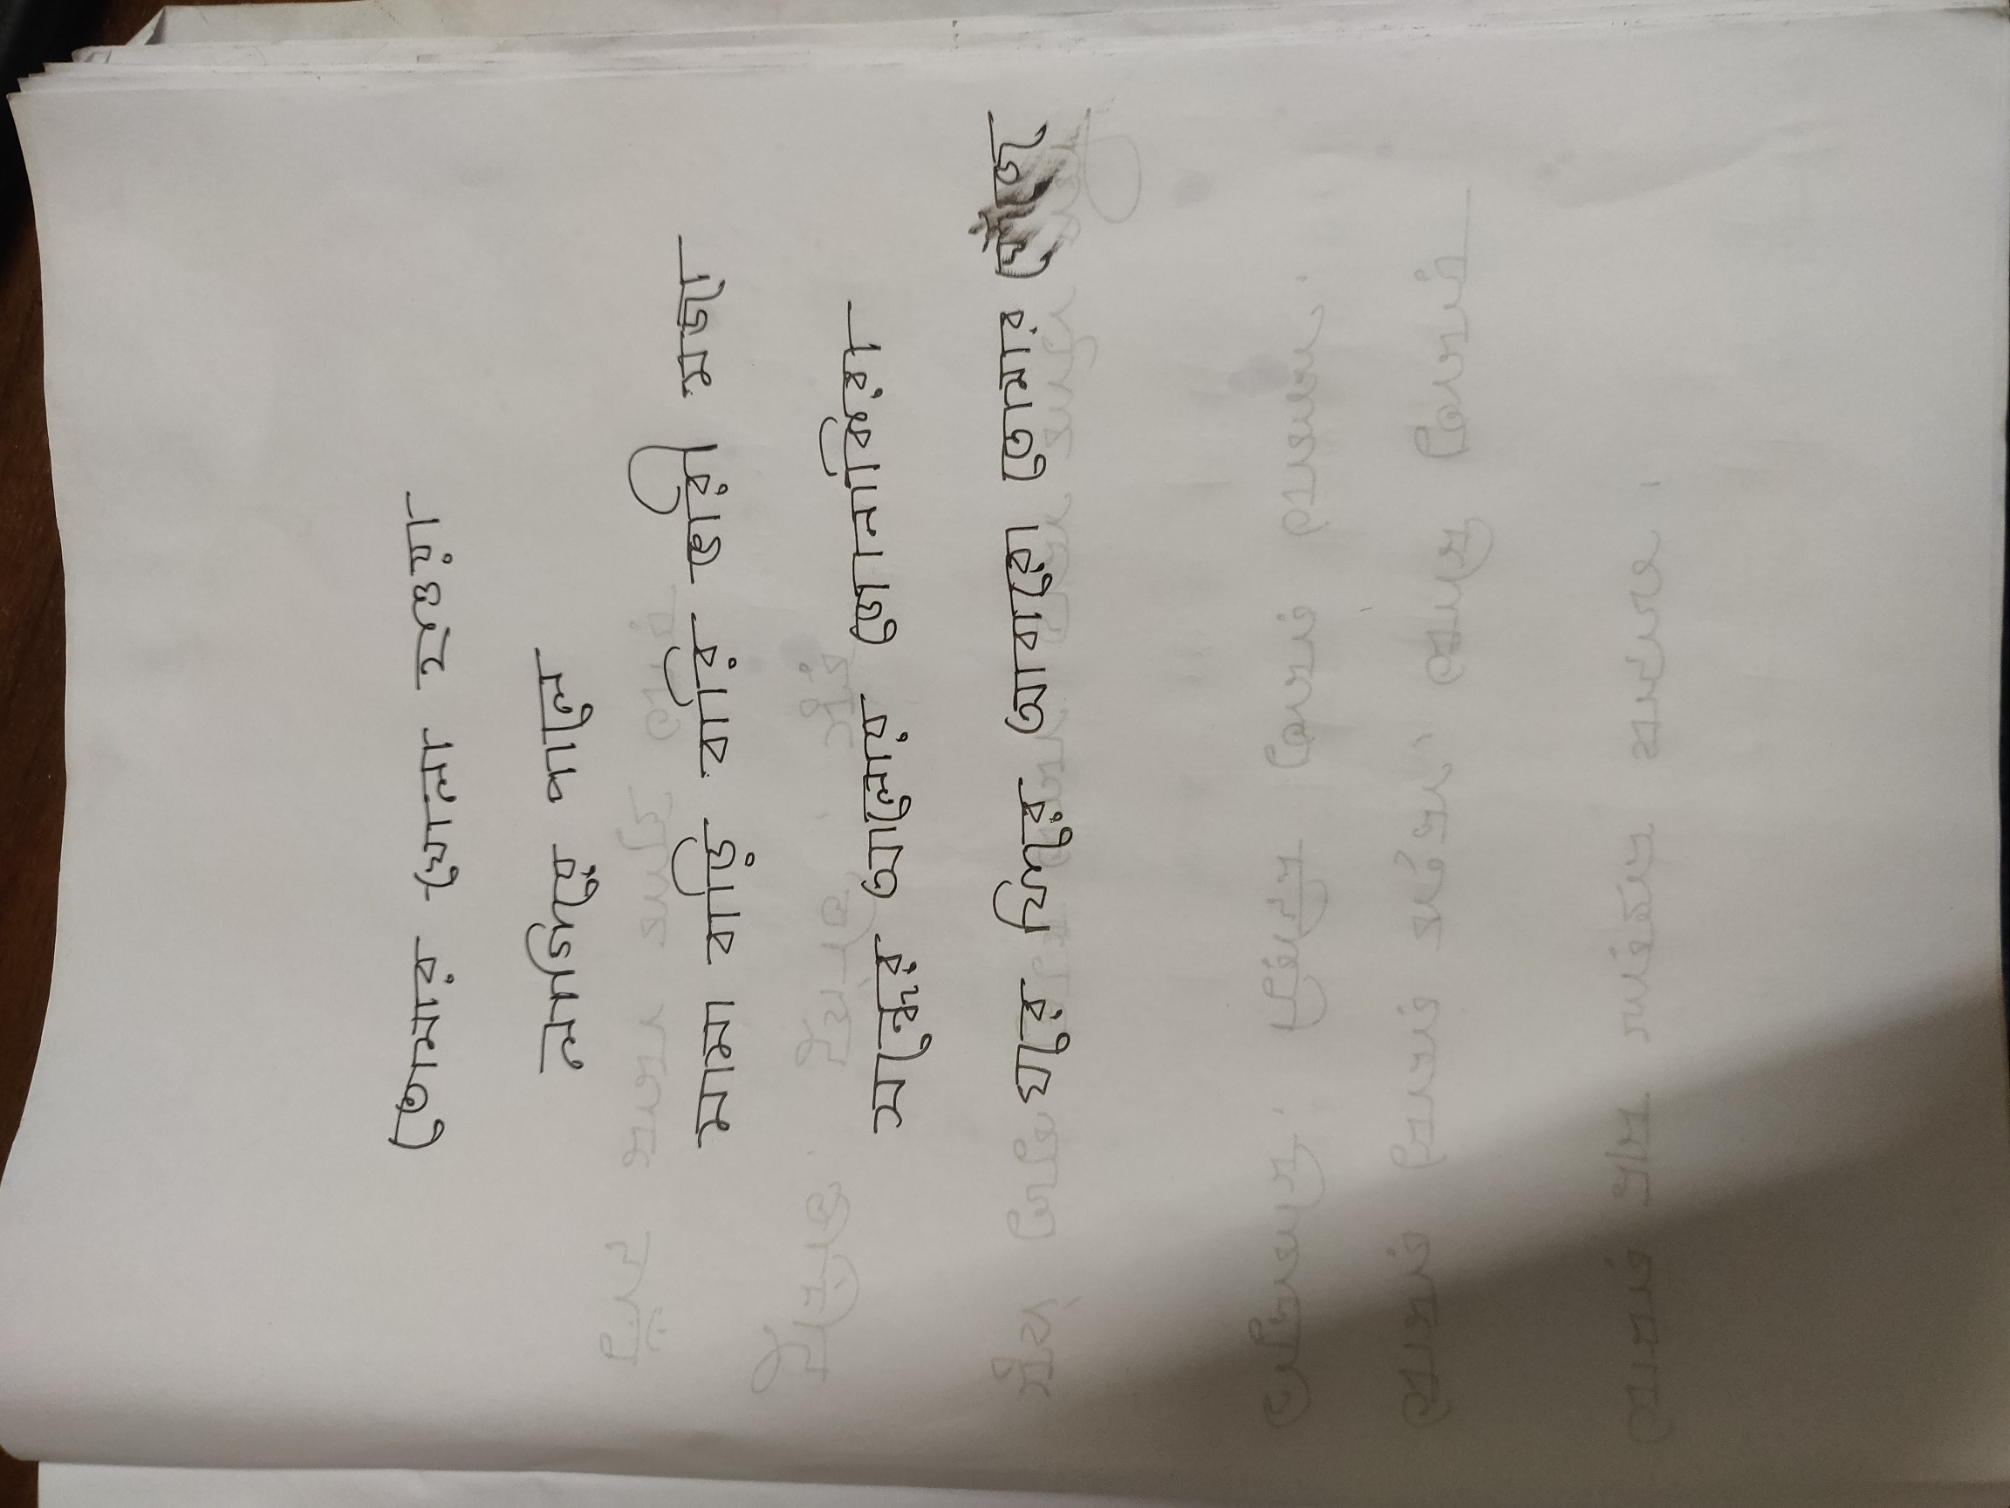 তোমার খোলা হাওয়া
লাগিয়ে পালে
মামা বাড়ি বারি ভারী মজা
সন্ধের আলোয় জোনাকিরা
ঘরে ফিরে আবারো তোমার খোঁজে